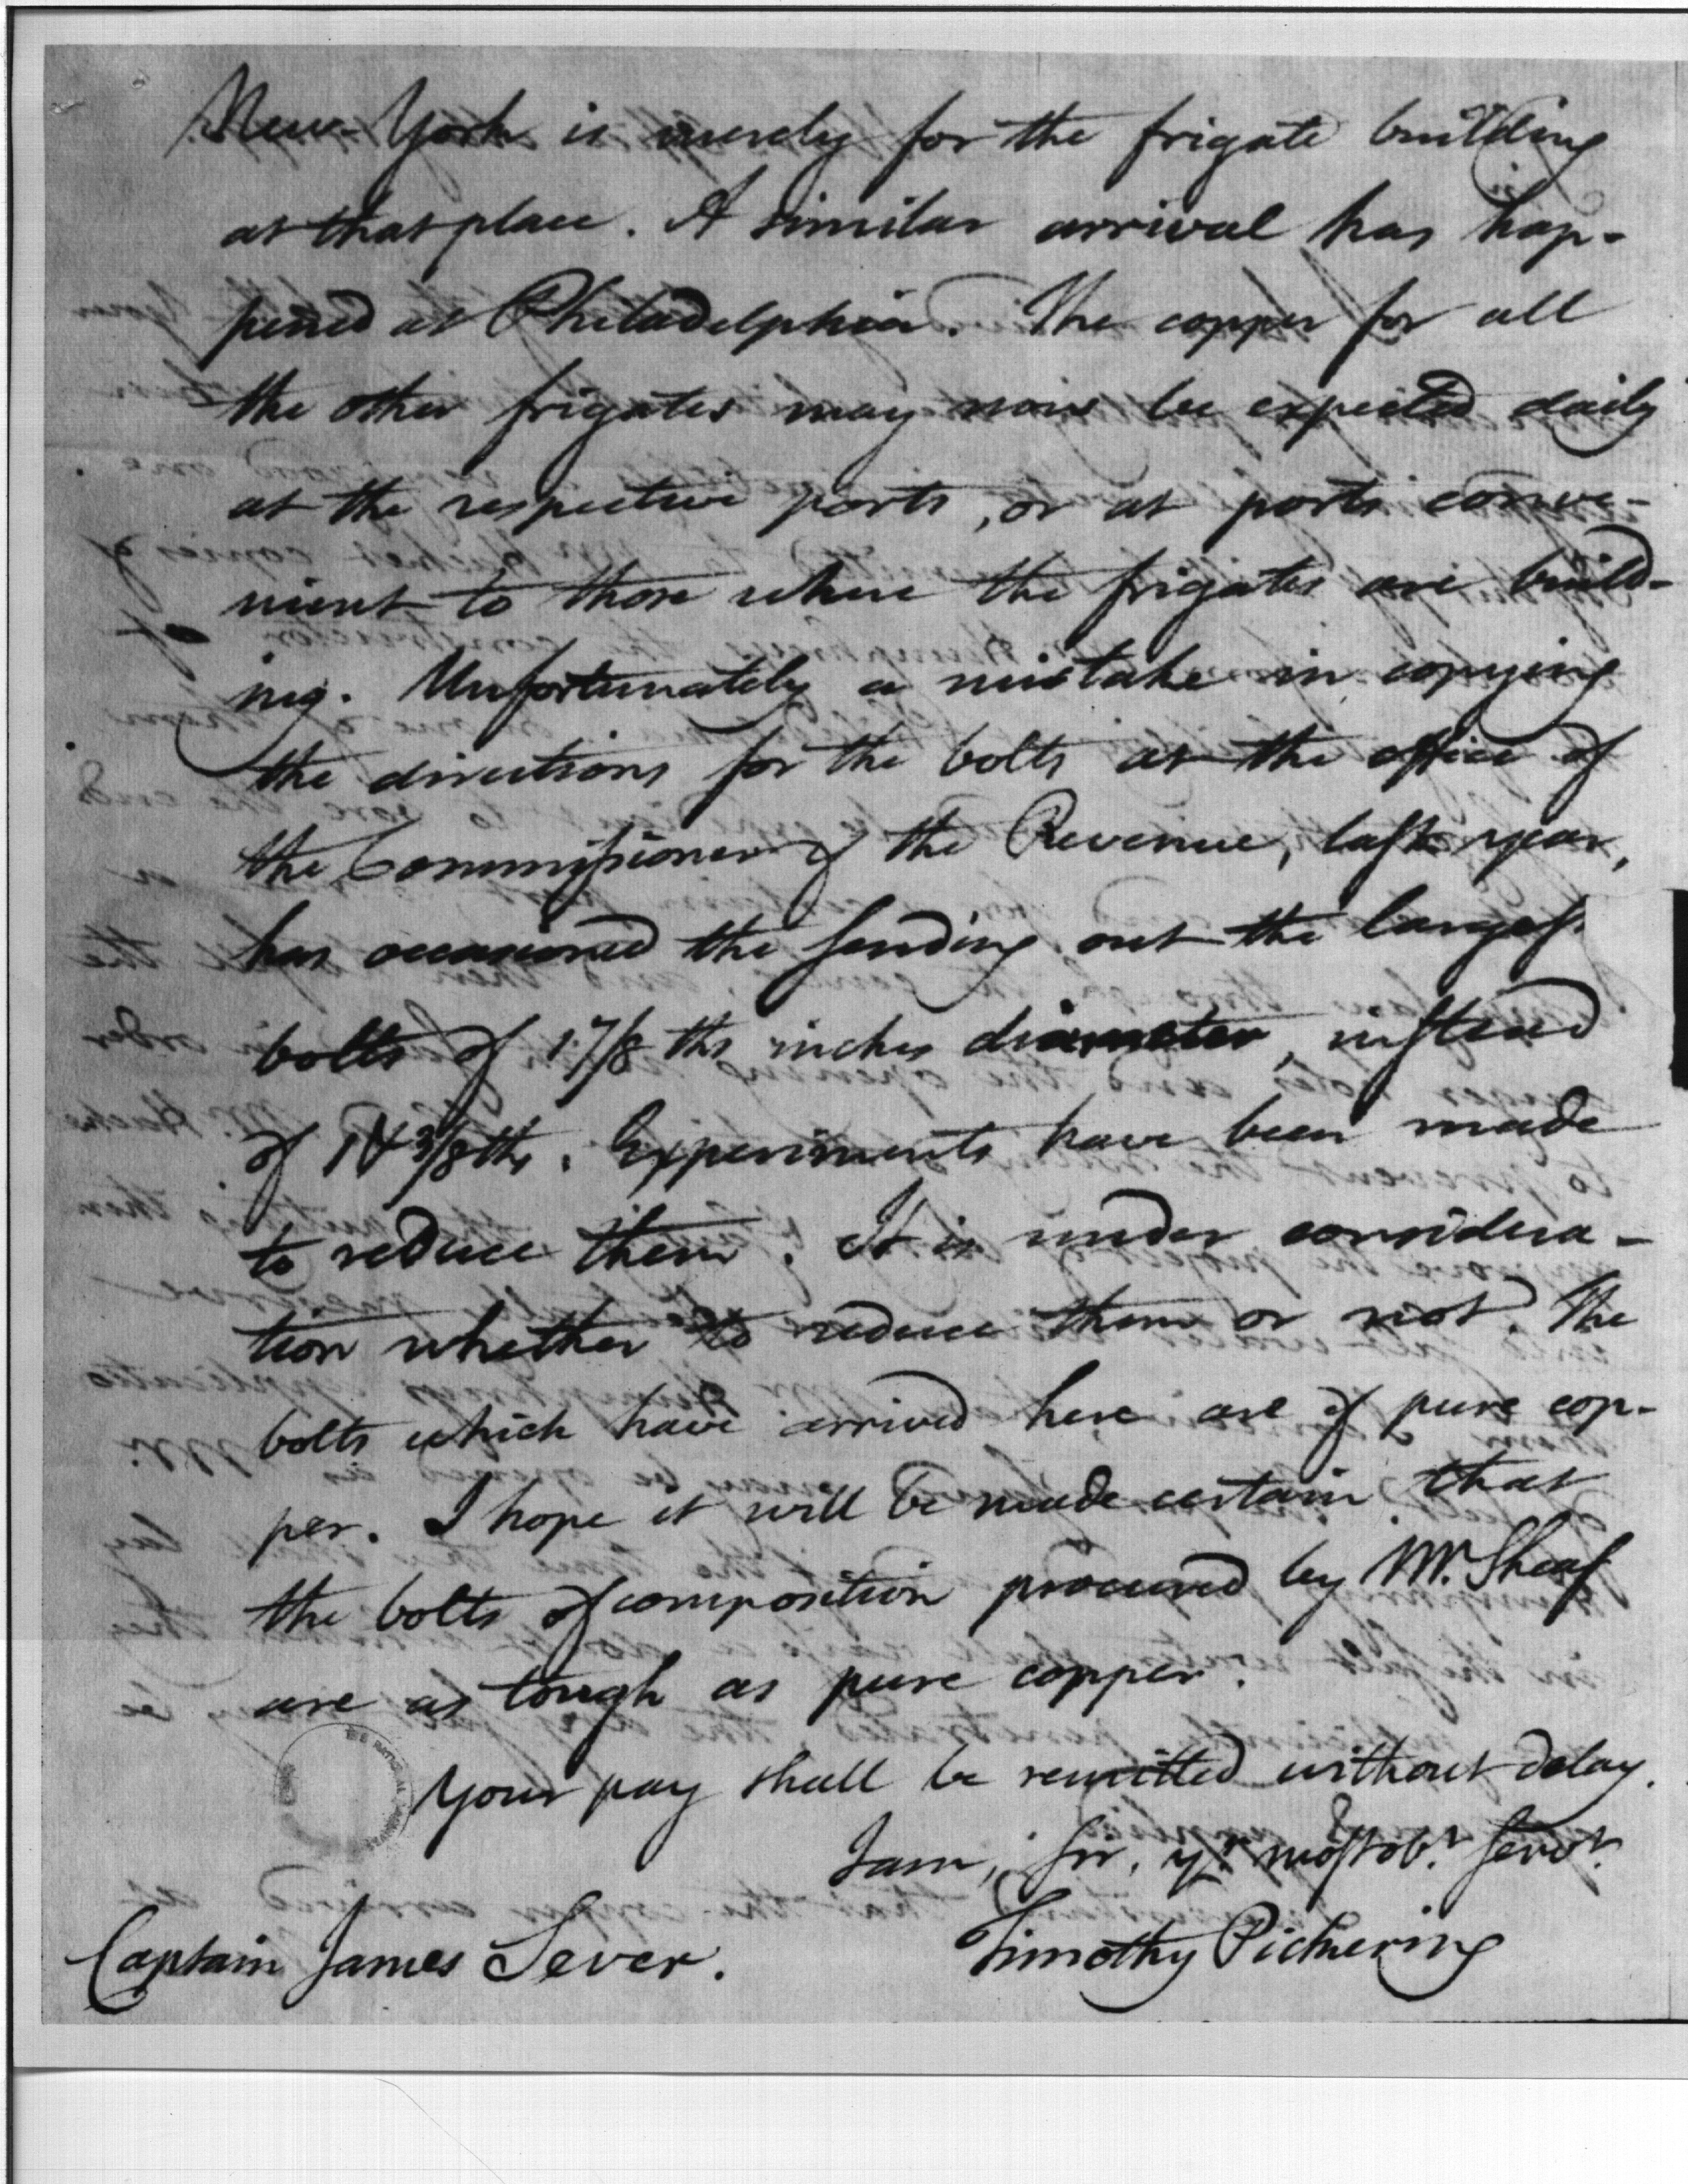 New-York is merely for the frigate building
at that place. A similar arrival has hap-
pened at Philadelphia. The copper for all
the other frigates may now be expected daily
at the respective ports, or at ports conve-
nient to those where the frigates are build-
ing. Unfortunately a mistake in copying
the directions for the bolts at the office of
the Commissioner of the Revenue, last year,
has occasioned the sending out the largest
bolts of 1 7/8 ths inches diameter, instead
of 1 & 3/8ths. Experiments have been made
to reduce them. It is under considera-
tion whether to reduce them or not. The
bolts which have arrived here are of pure cop-
per. I hope it will be made certain that
the bolts of composition procured by Mr. Sheaf
are as tough as pure copper.
Your pay shall be remitted without delay.
I am, Sir, yr. most obt. Servt.
Timothy Pickering
Captain James Sever.